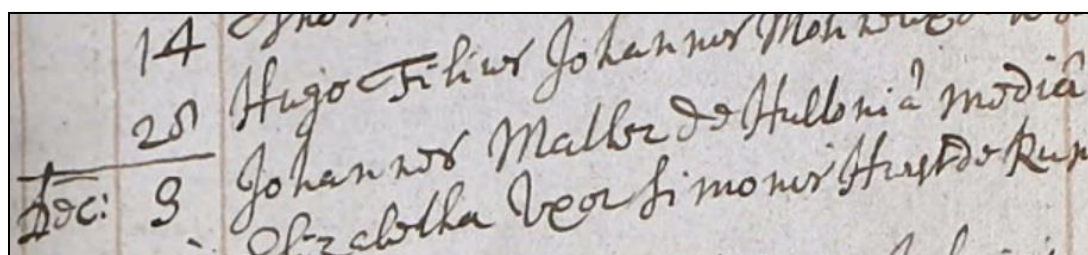 14
Hugo Filius Johannis
28 Johannes Maller de Hultonia media
Dec: 3 Elizabetha Uxor Simonis Hurst de Rum